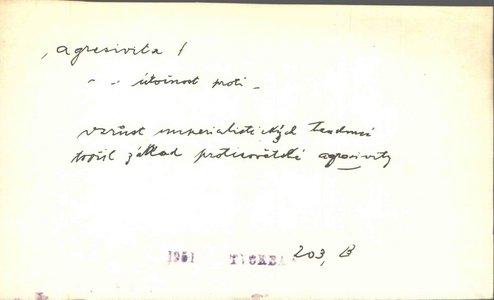 , agresivita /
- - útočnost proti -
vzrůst imperialistických tendencí
tvořil základ protisovětské agresivity
1951 203, B